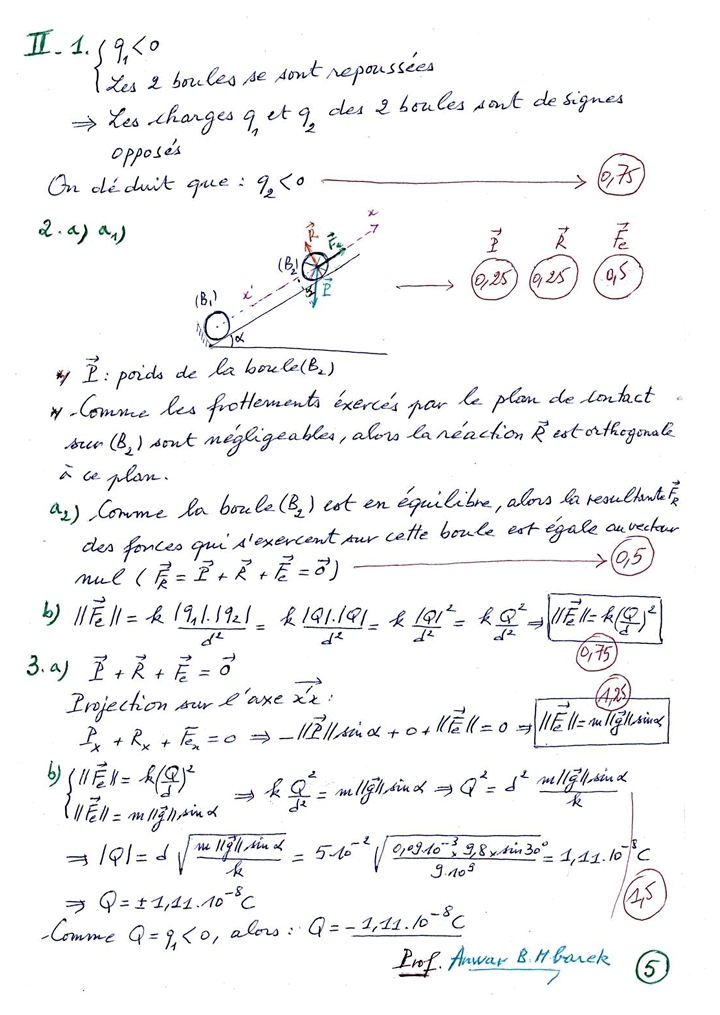 II-1. { q₁ < 0
Les 2 boules se sont repoussées
⇒ Les charges q₁ et q₂ des 2 boules sont de signes
opposés
On déduit que : q₂ < 0 → 0,75
2. a) a₁)
x
R⃗ F⃗e
(B₂)
P⃗
x'
(B₁)
α
P⃗ R⃗ F⃗e
→ 0,25 0,25 0,5
* P⃗ : poids de la boule (B₂)
* - Comme les frottements éxercés par le plan de contact
sur (B₂) sont négligeables, alors la réaction R⃗ est orthogonale
à ce plan.
a₂) Comme la boule (B₂) est en équilibre, alors la resultante F⃗R
des forces qui s'exercent sur cette boule est égale au vecteur
nul ( F⃗R = P⃗ + R⃗ + F⃗e = 0⃗ ) → 0,5
b) ||F⃗e|| = k |q₁|.|q₂| / d² = k |Q|.|Q| / d² = k |Q|² / d² = k Q² / d² ⇒ ||F⃗e|| = k(Q/d)²
0,75
3. a) P⃗ + R⃗ + F⃗e = 0⃗
Projection sur l'axe x'x : 1,25
Px + Rx + Fex = 0 ⇒ - ||P⃗|| sin α + 0 + ||F⃗e|| = 0 ⇒ ||F⃗e|| = m ||g⃗|| sin α
b) { ||F⃗e|| = k(Q/d)²
||F⃗e|| = m ||g⃗|| sin α ⇒ k Q²/d² = m ||g⃗|| sin α ⇒ Q² = d² m ||g⃗|| sin α / k
⇒ |Q| = d √(m ||g⃗|| sin α / k) = 5.10⁻² √(0,09.10⁻³ × 9,8 × sin 30° / 9.10⁹) = 1,11.10⁻⁸ C
⇒ Q = ± 1,11.10⁻⁸ C 1,5
- Comme Q = q₁ < 0, alors : Q = - 1,11.10⁻⁸ C
Prof. Anwar B. Mbarek 5